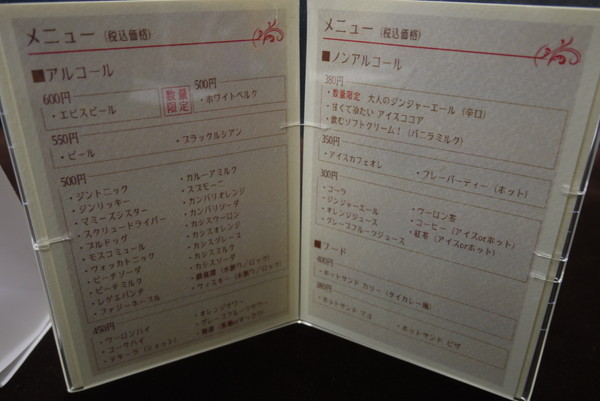 メニュー (税込価格)
■アルコール
600円
・エビスビール
数量
限定
500円
・ホワイトベルク
550円
・ビール
・ブラックルシアン
500円
・ジントニック
・ジンリッキー
・マミーズシスター
・スクリュードライバー
・ブルドッグ
・モスコミュール
・ウォッカトニック
・ピーチソーダ
・ピーチミルク
・レゲエパンチ
・ファジーネーブル
・カルーアミルク
・スプモーニ
・カンパリオレンジ
・カンパリソーダ
・カシスウーロン
・カシスオレンジ
・カシスグレース
・カシスミルク
・カシスソーダ
・ウィスキー (水割り/ロック)
450円
・ウーロンハイ
・コークハイ
・テキーラ (ショット)
・オレンジサワー
・グレープフルーツサワー
メニュー (税込価格)
■ノンアルコール
380円
・数量限定 大人のジンジャーエール (辛口)
・甘くて冷たい アイスココア
・飲むソフトクリーム! (バニラミルク)
350円
・アイスカフェオレ
・フレーバーティー (ホット)
300円
・コーラ
・ジンジャーエール
・オレンジジュース
・グレープフルーツジュース
・ウーロン茶
・コーヒー (アイスorホット)
・紅茶 (アイスorホット)
■フード
400円
・ホットサンド カリー (タイカレー風)
・ホットサンド ツナ
・ホットサンド ピザ